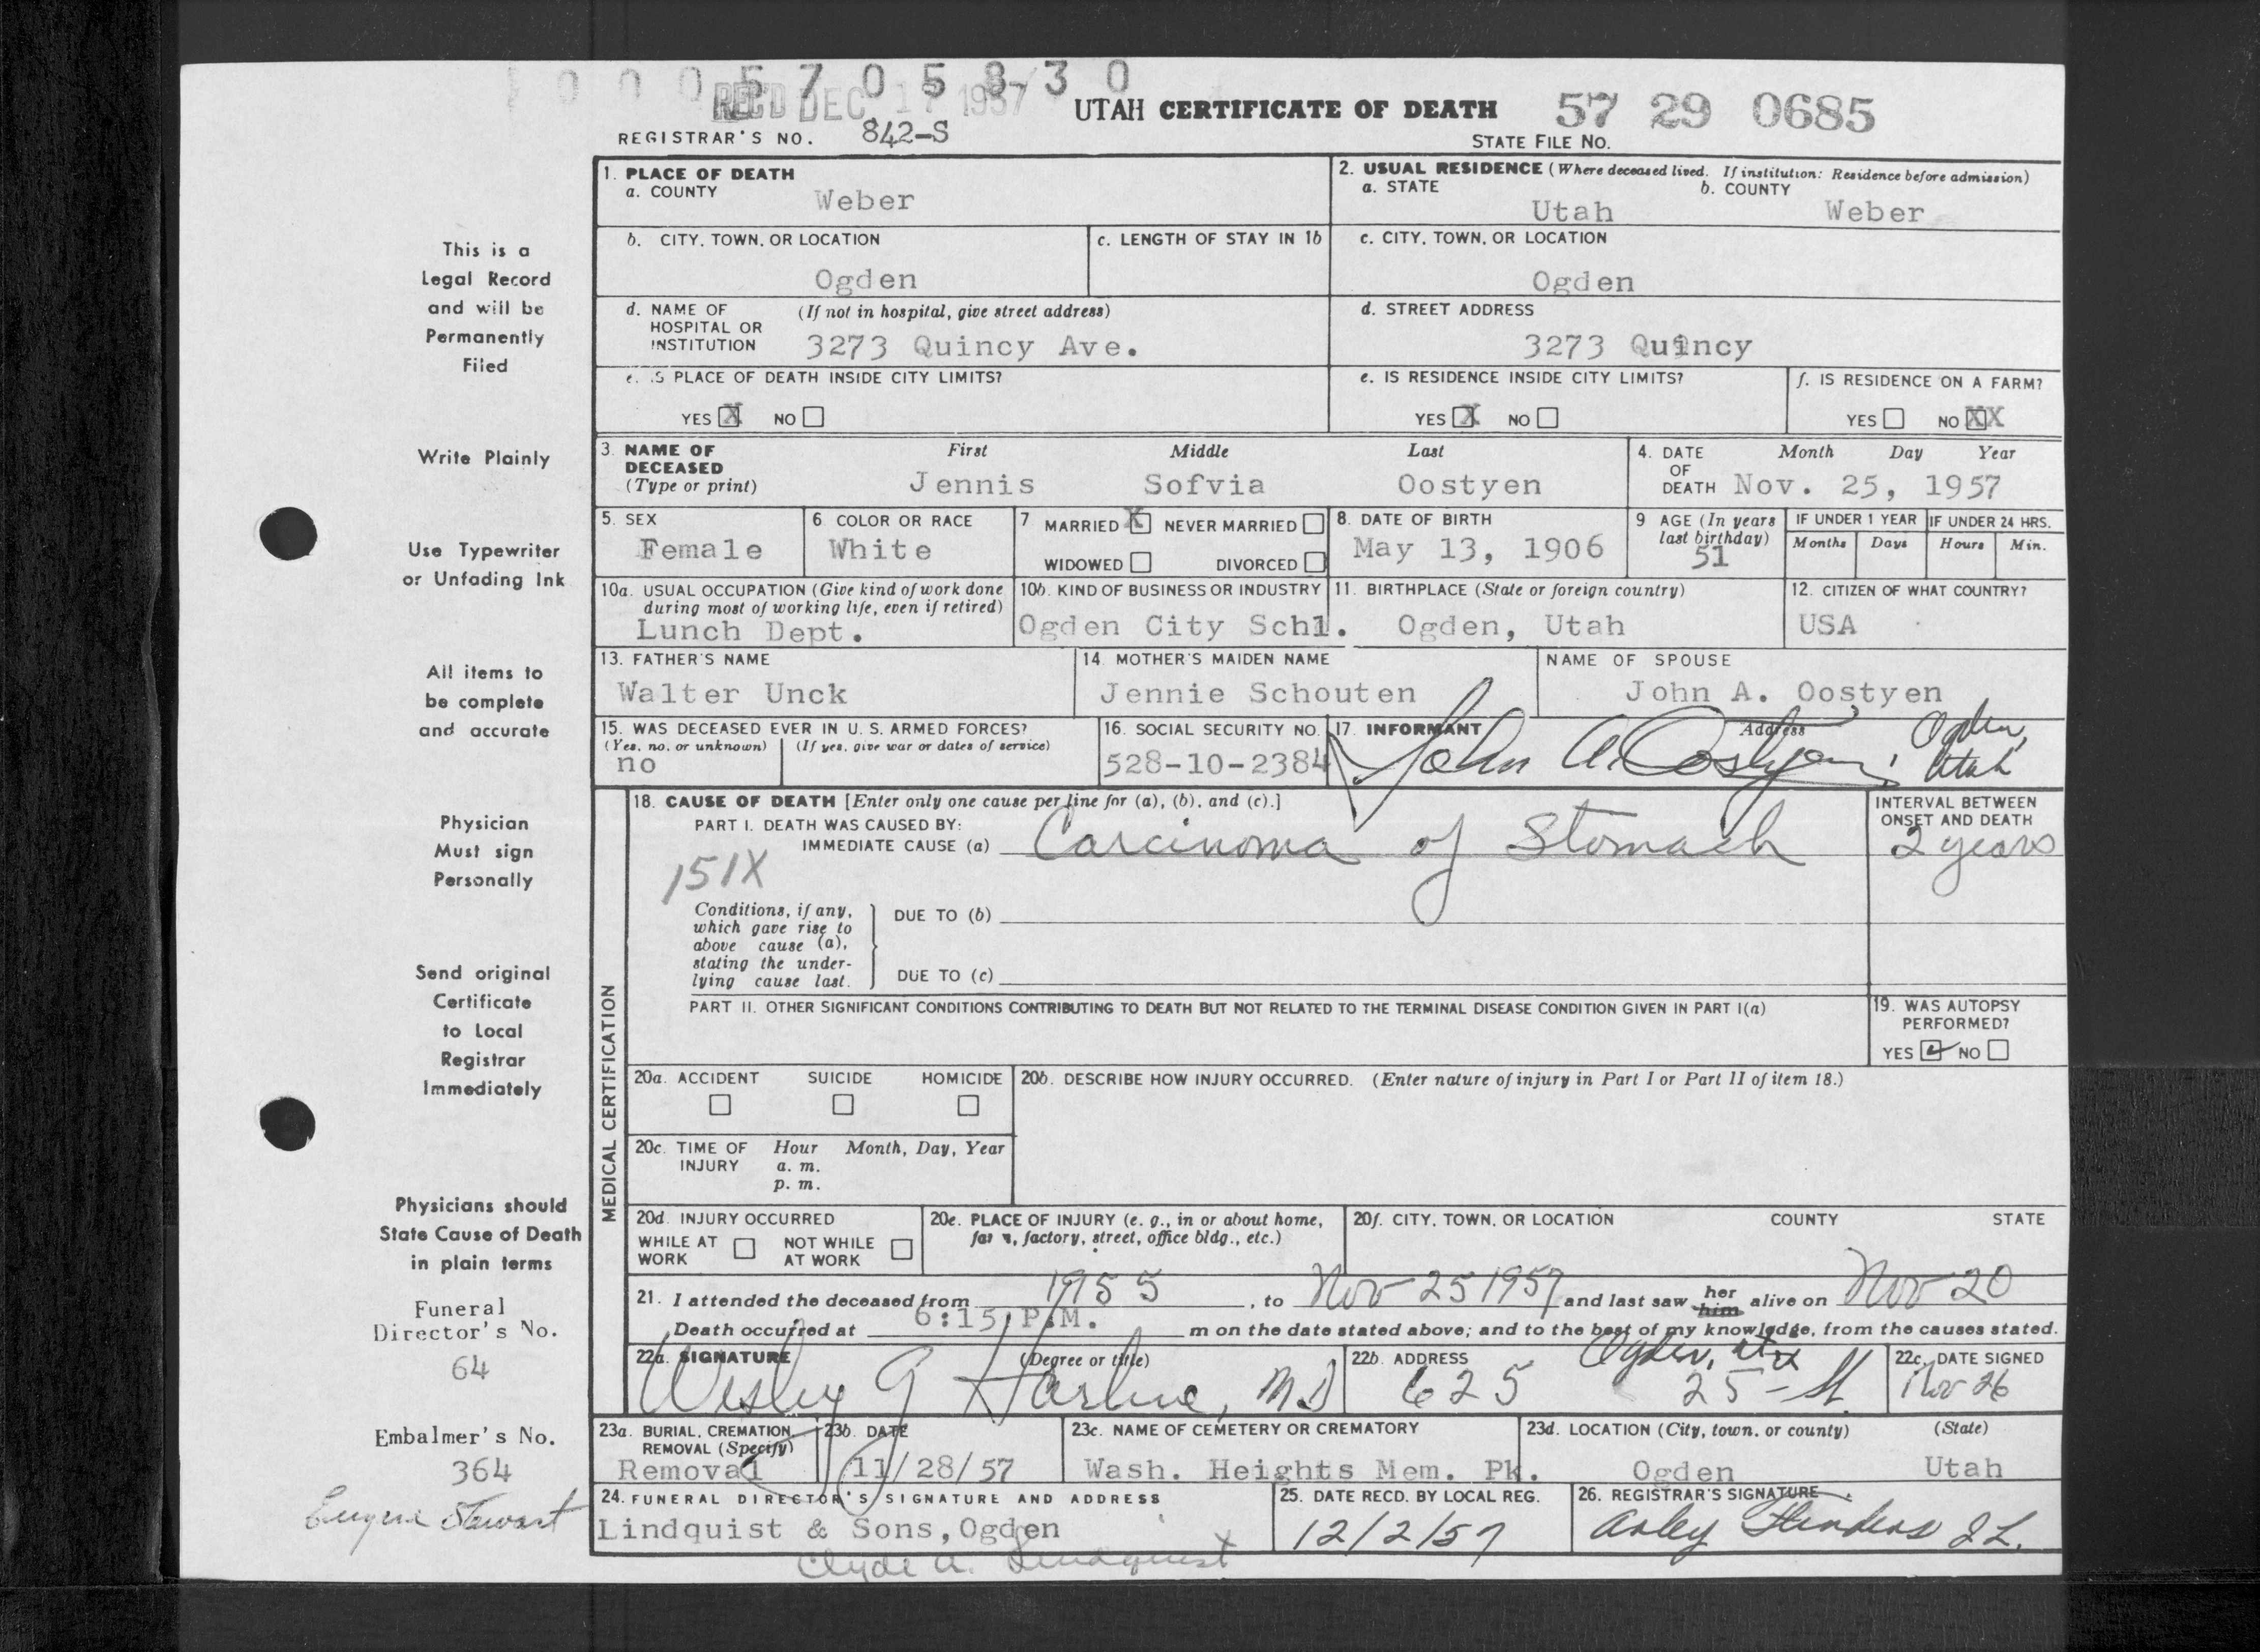 0 0 0 5 7 0 5 8 3 0
REC'D DEC 17 1957
UTAH CERTIFICATE OF DEATH 57 29 0685
REGISTRAR'S NO. 842-S STATE FILE NO.
1. PLACE OF DEATH
a. COUNTY Weber
2. USUAL RESIDENCE (Where deceased lived. If institution: Residence before admission)
a. STATE Utah b. COUNTY Weber
b. CITY, TOWN, OR LOCATION Ogden
c. LENGTH OF STAY IN 1b
c. CITY, TOWN, OR LOCATION Ogden
d. NAME OF HOSPITAL OR INSTITUTION (If not in hospital, give street address) 3273 Quincy Ave.
d. STREET ADDRESS 3273 Quincy
e. IS PLACE OF DEATH INSIDE CITY LIMITS?
YES X NO
e. IS RESIDENCE INSIDE CITY LIMITS?
YES X NO
f. IS RESIDENCE ON A FARM?
YES NO XX
3. NAME OF DECEASED (Type or print)
First Middle Last
Jennis Sofvia Oostyen
4. DATE OF DEATH Month Day Year
Nov. 25, 1957
5. SEX Female
6. COLOR OR RACE White
7 MARRIED X NEVER MARRIED
WIDOWED DIVORCED
8. DATE OF BIRTH May 13, 1906
9 AGE (In years last birthday) 51
IF UNDER 1 YEAR Months Days
IF UNDER 24 HRS. Hours Min.
10a. USUAL OCCUPATION (Give kind of work done during most of working life, even if retired)
Lunch Dept.
10b. KIND OF BUSINESS OR INDUSTRY
Ogden City Schl.
11. BIRTHPLACE (State or foreign country)
Ogden, Utah
12. CITIZEN OF WHAT COUNTRY?
USA
13. FATHER'S NAME
Walter Unck
14. MOTHER'S MAIDEN NAME
Jennie Schouten
NAME OF SPOUSE
John A. Oostyen
15. WAS DECEASED EVER IN U. S. ARMED FORCES?
(Yes, no, or unknown) (If yes, give war or dates of service)
no
16. SOCIAL SECURITY NO.
528-10-2384
17. INFORMANT Address
John A. Oostyen, Ogden, Utah
MEDICAL CERTIFICATION
18. CAUSE OF DEATH [Enter only one cause per line for (a), (b), and (c).]
PART I. DEATH WAS CAUSED BY:
IMMEDIATE CAUSE (a) Carcinoma of Stomach
INTERVAL BETWEEN ONSET AND DEATH
2 years
151X
Conditions, if any, which gave rise to above cause (a), stating the underlying cause last.
DUE TO (b)
DUE TO (c)
PART II. OTHER SIGNIFICANT CONDITIONS CONTRIBUTING TO DEATH BUT NOT RELATED TO THE TERMINAL DISEASE CONDITION GIVEN IN PART I(a)
19. WAS AUTOPSY PERFORMED?
YES ✓ NO
20a. ACCIDENT SUICIDE HOMICIDE
20b. DESCRIBE HOW INJURY OCCURRED. (Enter nature of injury in Part I or Part II of item 18.)
20c. TIME OF INJURY Hour Month, Day, Year
a. m.
p. m.
20d. INJURY OCCURRED
WHILE AT WORK NOT WHILE AT WORK
20e. PLACE OF INJURY (e. g., in or about home, farm, factory, street, office bldg., etc.)
20f. CITY, TOWN, OR LOCATION COUNTY STATE
21. I attended the deceased from 1955, to Nov 25 1957 and last saw her him alive on Nov 20
Death occurred at 6:15 P.M. m on the date stated above; and to the best of my knowledge, from the causes stated.
22a. SIGNATURE (Degree or title)
Wesley G Harline, M.D
22b. ADDRESS
625 25 - St. Ogden, Ut
22c. DATE SIGNED
Nov 26
23a. BURIAL, CREMATION, REMOVAL (Specify)
Removal
23b. DATE
11/28/57
23c. NAME OF CEMETERY OR CREMATORY
Wash. Heights Mem. Pk.
23d. LOCATION (City, town, or county) (State)
Ogden Utah
24. FUNERAL DIRECTOR'S SIGNATURE AND ADDRESS
Lindquist & Sons, Ogden
Clyde A. Lindquist
25. DATE RECD. BY LOCAL REG.
12/2/57
26. REGISTRAR'S SIGNATURE
This is a
Legal Record
and will be
Permanently
Filed
Write Plainly
Use Typewriter
or Unfading Ink
All items to
be complete
and accurate
Physician
Must sign
Personally
Send original
Certificate
to Local
Registrar
Immediately
Physicians should
State Cause of Death
in plain terms
Funeral
Director's No.
64
Embalmer's No.
364
Eugene Stewart